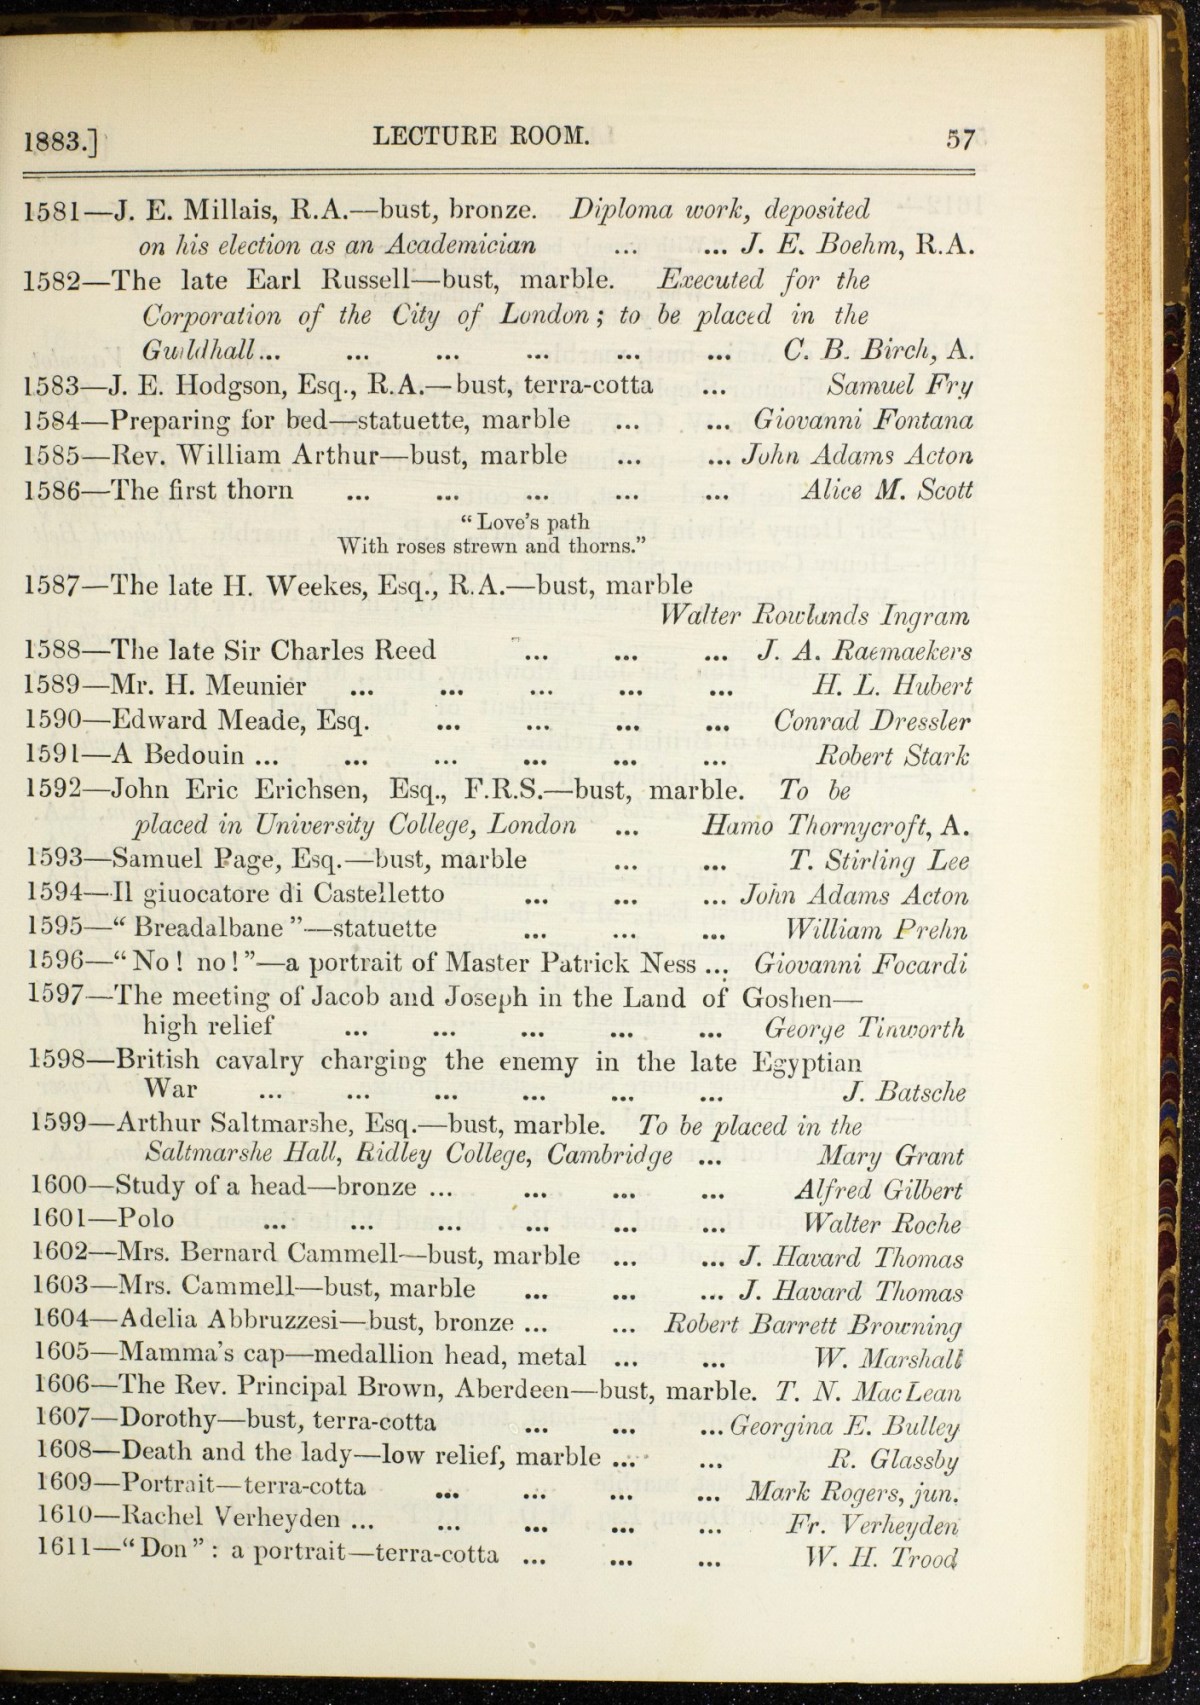 1883.] LECTURE ROOM. 57
1581—J. E. Millais, R.A.—bust, bronze. Diploma work, deposited
on his election as an Academician ... ... J. E. Boehm, R.A.
1582—The late Earl Russell—bust, marble. Executed for the
Corporation of the City of London; to be placed in the
Guildhall... ... ... ... ... ... C. B. Birch, A.
1583—J. E. Hodgson, Esq., R.A.—bust, terra-cotta ... Samuel Fry
1584—Preparing for bed—statuette, marble ... ... Giovanni Fontana
1585—Rev. William Arthur—bust, marble ... ... John Adams Acton
1586—The first thorn ... ... ... ... ... Alice M. Scott
"Love's path
With roses strewn and thorns."
1587—The late H. Weekes, Esq., R.A.—bust, marble
Walter Rowlands Ingram
1588—The late Sir Charles Reed ... ... ... J. A. Raemaekers
1589—Mr. H. Meunier ... ... ... ... ... H. L. Hubert
1590—Edward Meade, Esq. ... ... ... ... Conrad Dressler
1591—A Bedouin ... ... ... ... ... ... Robert Stark
1592—John Eric Erichsen, Esq., F.R.S.—bust, marble. To be
placed in University College, London ... Hamo Thornycroft, A.
1593—Samuel Page, Esq.—bust, marble ... ... T. Stirling Lee
1594—Il giuocatore di Castelletto ... ... ... John Adams Acton
1595—"Breadalbane"—statuette ... ... ... William Prehn
1596—"No! no!"—a portrait of Master Patrick Ness ... Giovanni Focardi
1597—The meeting of Jacob and Joseph in the Land of Goshen—
high relief ... ... ... ... ... George Tinworth
1598—British cavalry charging the enemy in the late Egyptian
War ... ... ... ... ... ... J. Batsche
1599—Arthur Saltmarshe, Esq.—bust, marble. To be placed in the
Saltmarshe Hall, Ridley College, Cambridge ... Mary Grant
1600—Study of a head—bronze ... ... ... ... Alfred Gilbert
1601—Polo ... ... ... ... ... ... Walter Roche
1602—Mrs. Bernard Cammell—bust, marble ... ... J. Havard Thomas
1603—Mrs. Cammell—bust, marble ... ... ... J. Havard Thomas
1604—Adelia Abbruzzesi—bust, bronze ... ... Robert Barrett Browning
1605—Mamma's cap—medallion head, metal ... ... W. Marshall
1606—The Rev. Principal Brown, Aberdeen—bust, marble. T. N. MacLean
1607—Dorothy—bust, terra-cotta ... ... ... Georgina E. Bulley
1608—Death and the lady—low relief, marble ... ... R. Glassby
1609—Portrait—terra-cotta ... ... ... ... Mark Rogers, jun.
1610—Rachel Verheyden ... ... ... ... ... Fr. Verheyden
1611—"Don": a portrait—terra-cotta ... ... ... W. H. Trood